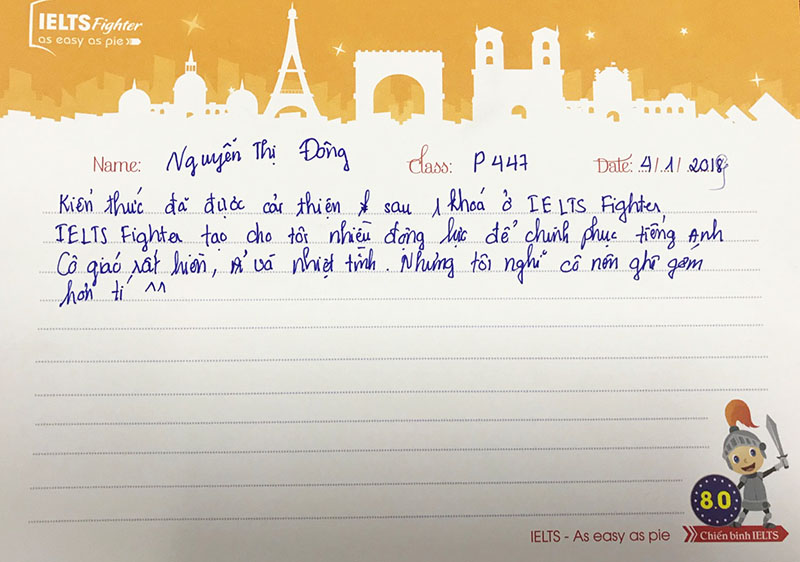 IELTS Fighter
as easy as pie
Name: Nguyễn Thị Động Class: P447 Date: 4/1/2018
Kiến thức đã được cải thiện sau 1 khoá ở IELTS Fighter,
IELTS Fighter tạo cho tôi nhiều động lực để chinh phục tiếng Anh
Cô giáo rất hiền, và nhiệt tình. Nhưng tôi nghĩ cô nên ghê gớm
hơn tí ^^
8.0
IELTS - As easy as pie Chiến binh IELTS